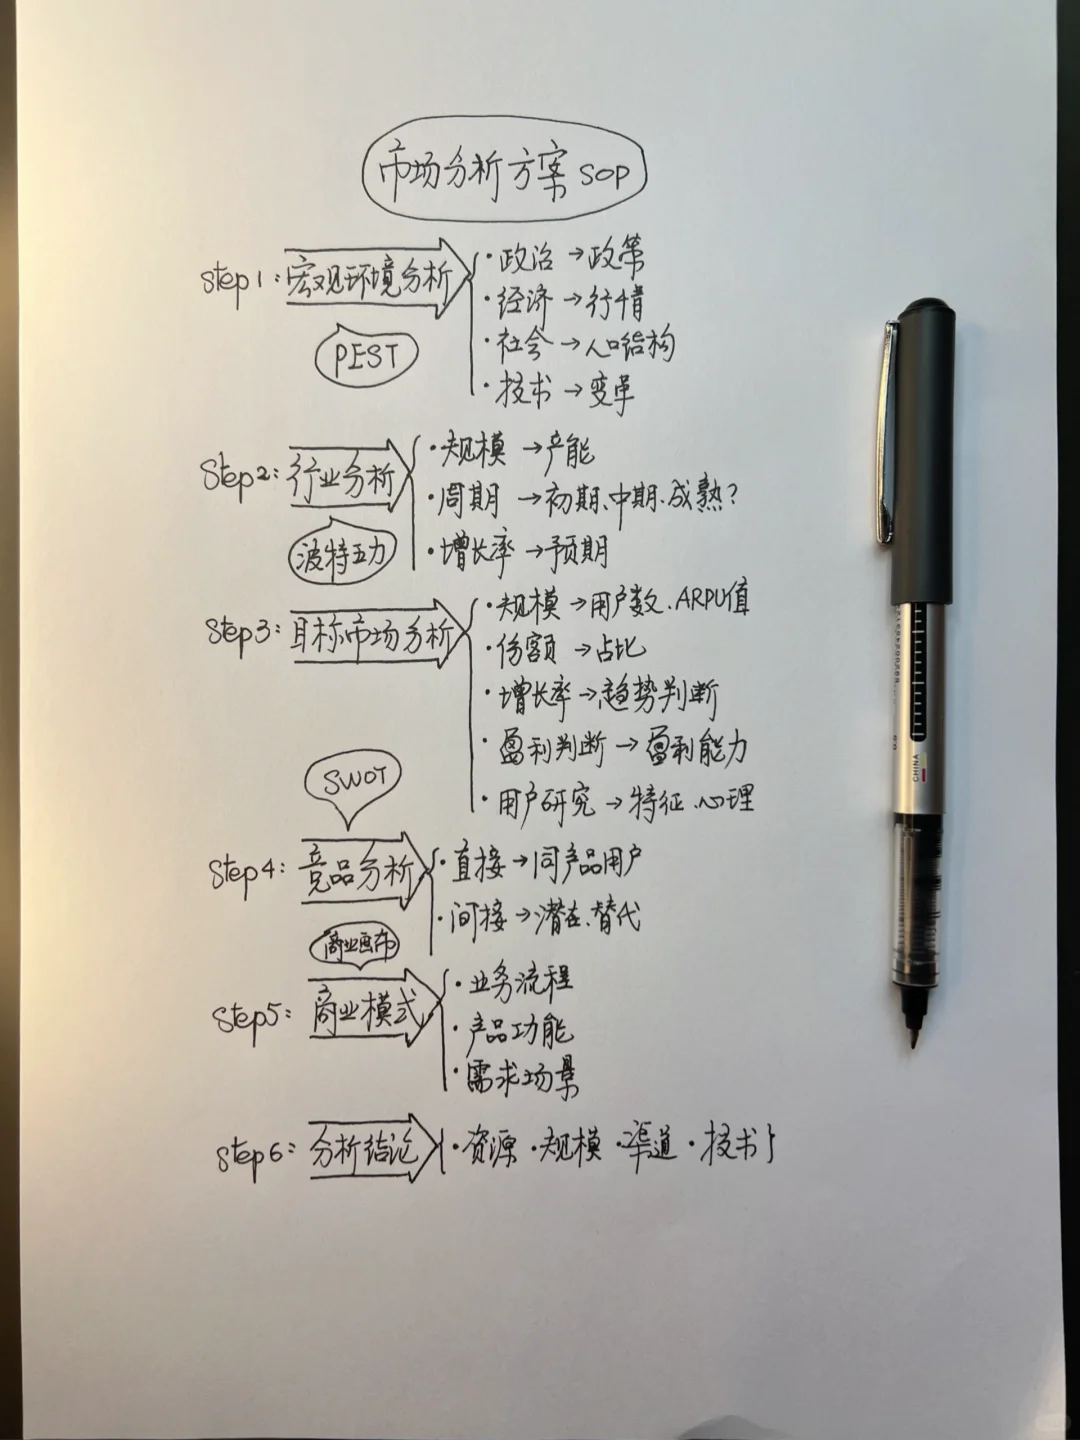 市场分析方案 SOP
Step1: 宏观环境分析
PEST
·政治→政策
·经济→行情
·社会→人口结构
·技术→变革
Step2: 行业分析
波特五力
·规模→产能
·周期→初期、中期、成熟?
·增长率→预期
Step3: 目标市场分析
·规模→用户数、ARPU值
·份额→占比
·增长率→趋势判断
·盈利判断→盈利能力
·用户研究→特征、心理
SWOT
Step4: 竞品分析
·直接→同产品用户
·间接→潜在、替代
商业画布
Step5: 商业模式
·业务流程
·产品功能
·需求场景
Step6: 分析结论 {·资源 ·规模 ·渠道 ·技术}
CHINA